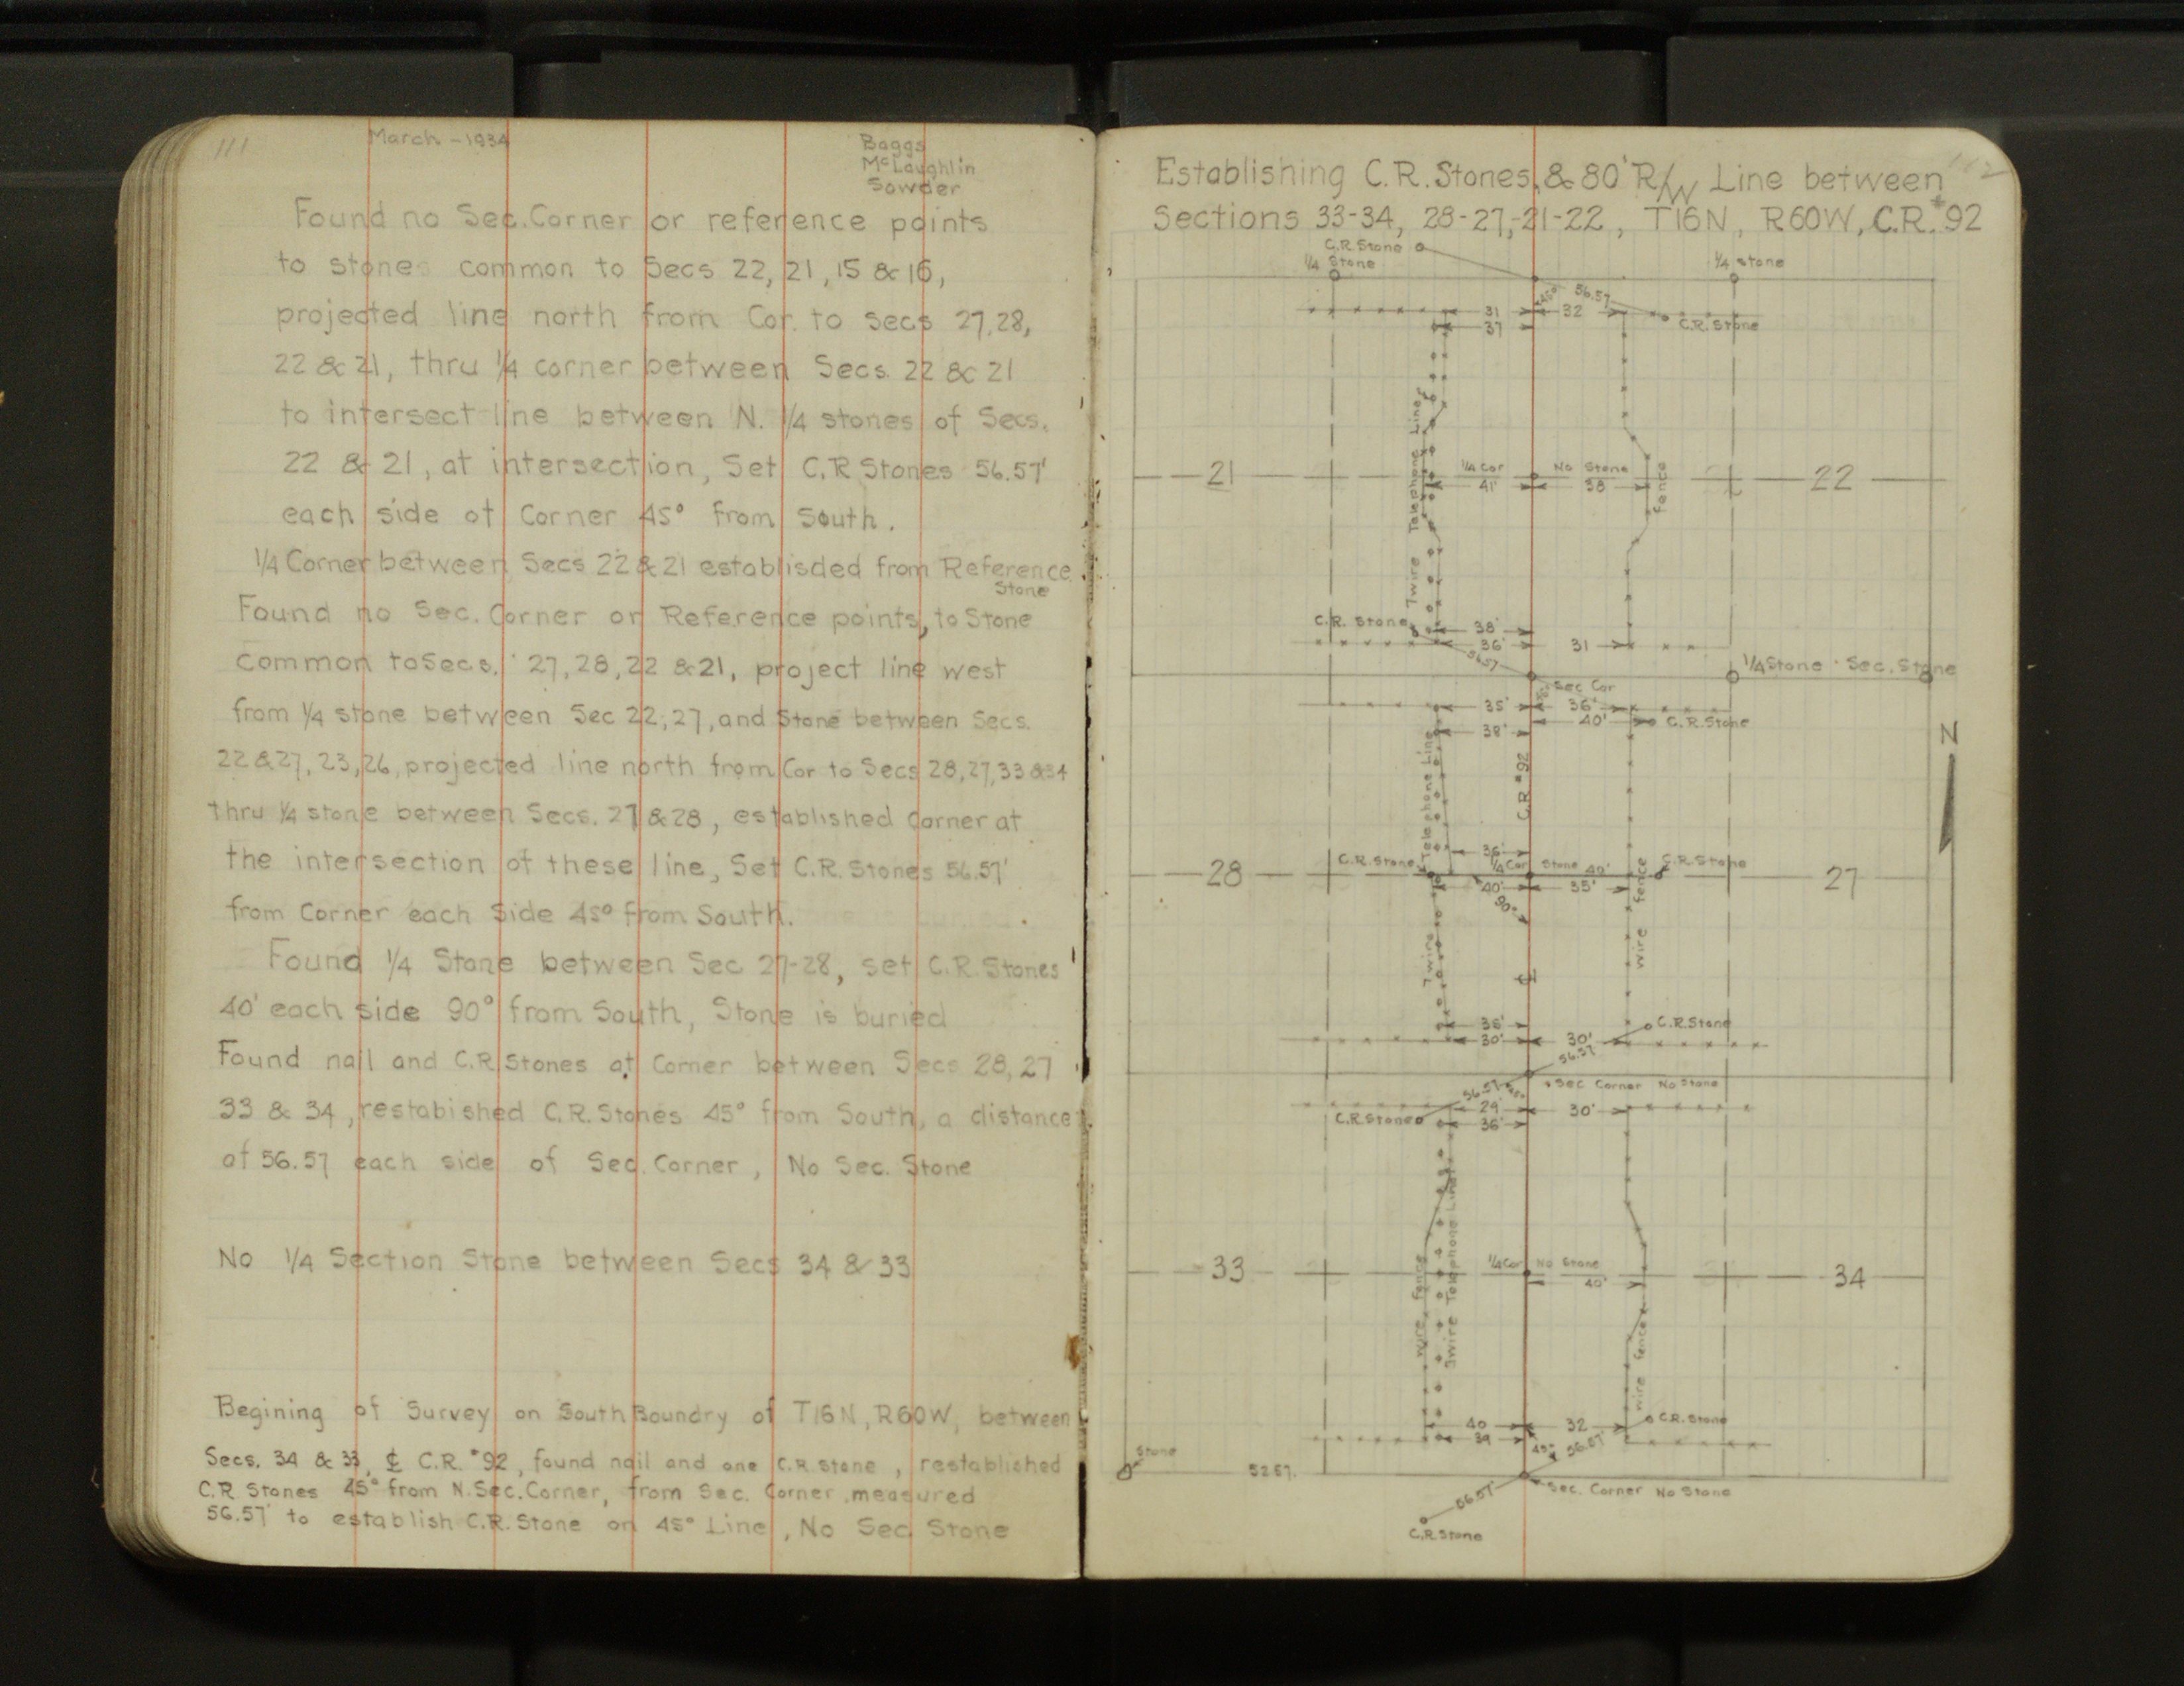 111
March - 1934
Baggs
McLaughlin
Sowder
Found no Sec. Corner or reference points
to stones common to Secs 22, 21, 15 & 16,
projected line north from Cor. to Secs 27, 28,
22 & 21, thru 1/4 corner between Secs. 22 & 21
to intersect line between N. 1/4 stones of Secs.
22 & 21, at intersection, Set C.R Stones 56.57'
each side of Corner 45° from South.
1/4 Corner between Secs 22 & 21 establisded from Reference
Stone
Found no Sec. Corner or Reference points, to Stone
Common to Secs. 27, 28, 22 & 21, project line west
from 1/4 stone between Sec 22, 27, and Stone between Secs.
22 & 27, 23, 26, projected line north from Cor to Secs 28, 27, 33 & 34
thru 1/4 stone between Secs. 27 & 28, established Corner at
the intersection of these line, Set C.R. Stones 56.57'
from Corner each Side 45° from South.
Found 1/4 Stone between Sec 27-28, set C.R. Stones
40' each side 90° from South, Stone is buried
Found nail and C.R Stones at Corner between Secs 28, 27
33 & 34, restabished C.R. Stones 45° from South, a distance
of 56.57 each side of Sec. Corner, No Sec. Stone
No 1/4 Section Stone between Secs 34 & 33
Begining of Survey on South Boundry of T16N, R60W, between
Secs. 34 & 33, ℄ C.R. #92, found nail and one C.R. Stone, restablished
C.R Stones 45° from N. Sec. Corner, from Sec. Corner measured
56.57' to establish C.R. Stone on 45° Line, No Sec Stone
112
Establishing C.R. Stones, & 80' R/W Line between
Sections 33-34, 28-27,-21-22, T16N, R60W, C.R. #92
C.R Stone
1/4 Stone
1/4 Stone
45° 56.57
31 32
37
C.R. Stone
Telephone Line
7 wire
21
1/4 Cor No Stone
41' 38
fence
22
C.R. Stone
38'
36' 31
56.57
1/4 Stone Sec. Stone
Sec Cor
35' 36'
38' 40'
C.R. Stone
Telephone Line
C.R. #92
N
36'
C.R. Stone 1/4 Cor Stone 40' C.R. Stone
28
40' 35'
27
90°
7 wire
℄
wire fence
35'
30' 30'
C.R. Stone
56.57
Sec Corner No Stone
56.57 45°
C.R Stone
29 30'
36'
33
wire fence
3 wire Telephone Line
1/4 Cor No Stone
40'
34
wire fence
40 32
39
C.R. Stone
45° 56.57
Stone
5257.
Sec. Corner No Stone
56.57'
C.R. Stone